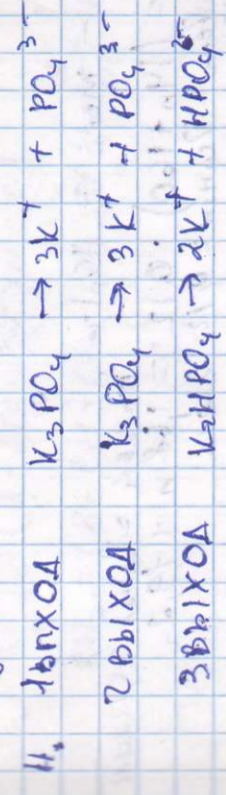 11. 1 выход K₃PO₄ → 3K⁺ + PO₄³⁻
2 выход K₃PO₄ → 3K⁺ + PO₄³⁻
3 выход K₂HPO₄ → 2K⁺ + HPO₄²⁻